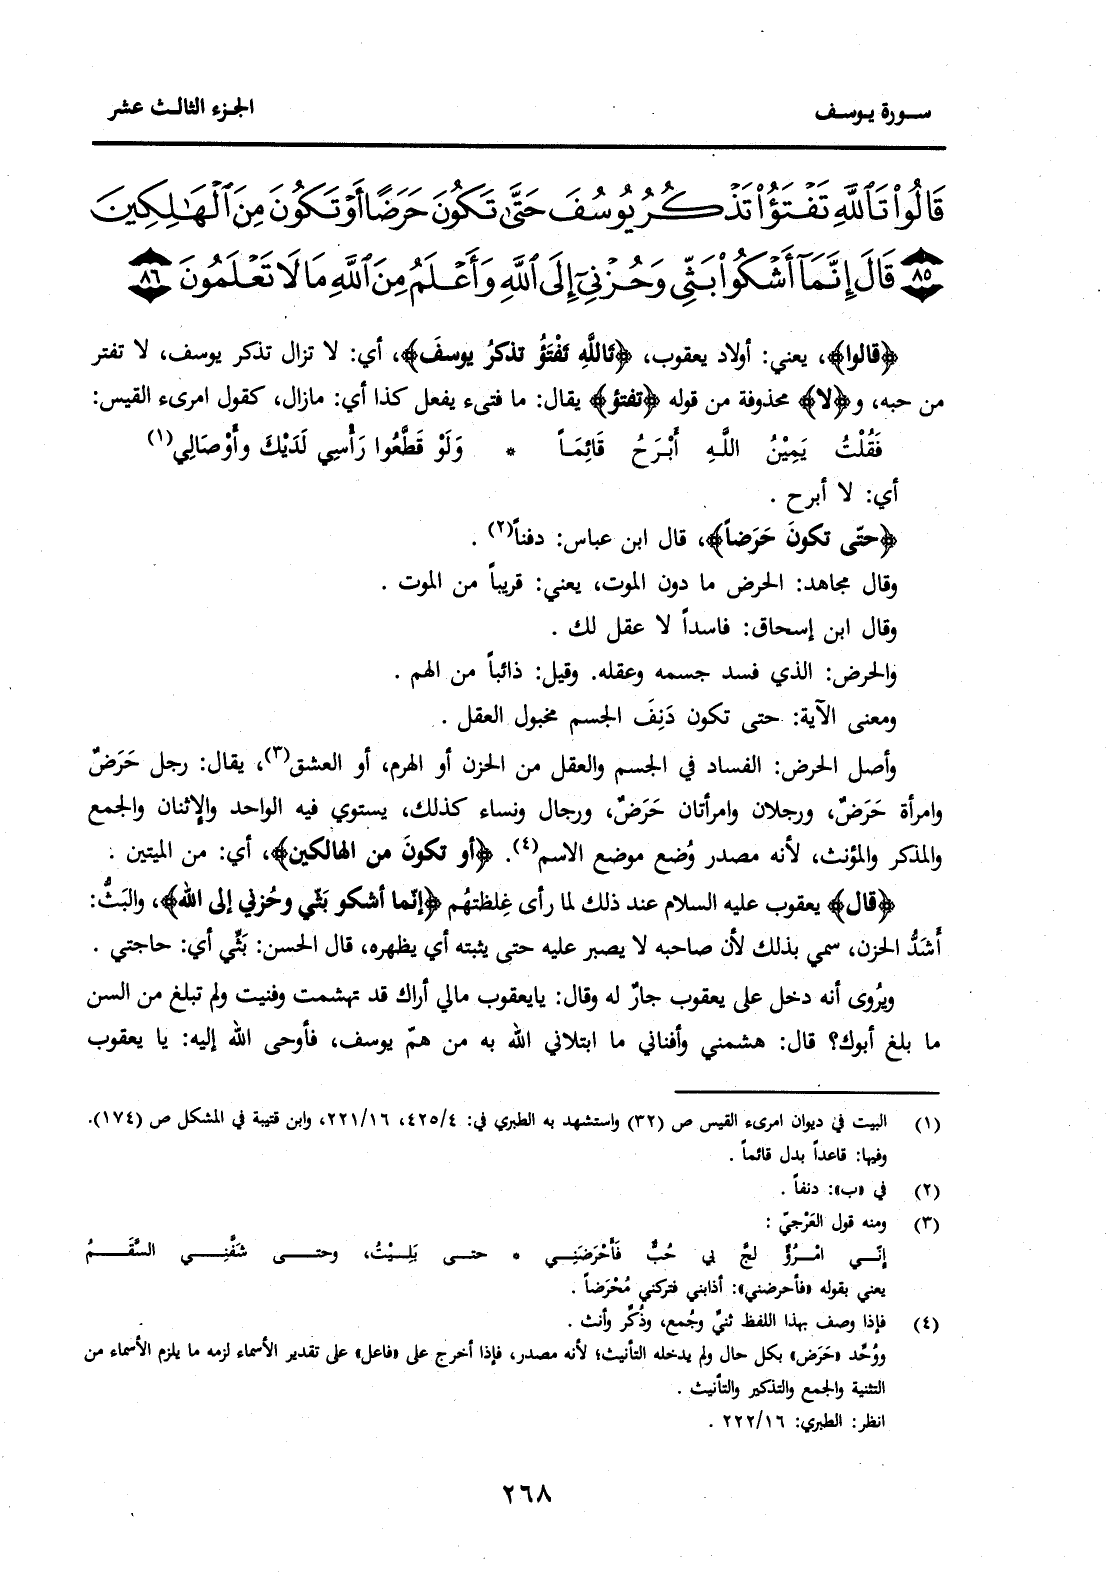 سورة يوسف
الجزء الثالث عشر
قَالُواْ تَٱللَّهِ تَفۡتَؤُاْ تَذۡكُرُ يُوسُفَ حَتَّىٰ تَكُونَ حَرَضًا أَوۡ تَكُونَ مِنَ ٱلۡهَٰلِكِينَ
﴿٨٥﴾ قَالَ إِنَّمَآ أَشۡكُواْ بَثِّي وَحُزۡنِيٓ إِلَى ٱللَّهِ وَأَعۡلَمُ مِنَ ٱللَّهِ مَا لَا تَعۡلَمُونَ ﴿٨٦﴾
﴿قالوا﴾، يعني: أولاد يعقوب، ﴿تَاللَّهِ تَفْتَؤُ تذكرُ يوسفَ﴾، أي: لا تزال تذكر يوسف، لا تفتر
من حبه، و﴿لا﴾ محذوفة من قوله ﴿تفتؤ﴾ يقال: ما فتىء يفعل كذا أي: مازال، كقول امرىء القيس:
فَقُلْتُ يَمِيْنُ اللَّهِ أَبْرَحُ قَائِمَاً * وَلَوْ قَطَّعُوا رَأْسِي لَدَيْكَ وأَوْصَالِي(١)
أي: لا أبرح .
﴿حتّى تكونَ حَرَضاً﴾، قال ابن عباس: دفناً(٢) .
وقال مجاهد: الحرض ما دون الموت، يعني: قريباً من الموت .
وقال ابن إسحاق: فاسداً لا عقل لك .
والحرض: الذي فسد جسمه وعقله. وقيل: ذائباً من الهم .
ومعنى الآية: حتى تكون دَنِفَ الجسم مخبول العقل .
وأصل الحرض: الفساد في الجسم والعقل من الحزن أو الهرم، أو العشق(٣)، يقال: رجل حَرَضٌ
وامرأة حَرَضٌ، ورجلان وامرأتان حَرَضٌ، ورجال ونساء كذلك، يستوي فيه الواحد والإثنان والجمع
والمذكر والمؤنث، لأنه مصدر وُضع موضع الاسم(٤). ﴿أو تكونَ من الهالكين﴾، أي: من الميتين .
﴿قال﴾ يعقوب عليه السلام عند ذلك لما رأى غِلظتهُم ﴿إنّما أشكو بَثّي وحُزني إلى الله﴾، والبَثُّ:
أَشَدُّ الحزن، سمي بذلك لأن صاحبه لا يصبر عليه حتى يثبته أي يظهره، قال الحسن: بَثِّي أي: حاجتي .
ويرُوى أنه دخل على يعقوب جارٌ له وقال: يايعقوب مالي أراك قد تهشمت وفنيت ولم تبلغ من السن
ما بلغ أبوك؟ قال: هشمني وأفناني ما ابتلاني الله به من همّ يوسف، فأوحى الله إليه: يا يعقوب
(١) البيت في ديوان امرىء القيس ص (٣٢) واستشهد به الطبري في: ٤٢٥/٤، ٢٢١/١٦، وابن قتيبة في المشكل ص (١٧٤).
وفيها: قاعداً بدل قائماً .
(٢) في «ب»: دنفاً .
(٣) ومنه قول العَرْجيّ :
إنّي امْرُؤٌ لجَّ بي حُبٌّ فَأَحْرَضَنِي * حتى بَلِيْتُ، وحتى شَفَّنِي السَّقَمُ
يعني بقوله «فأحرضني»: أذابني فتركني مُحْرَضاً .
(٤) فإذا وصف بهذا اللفظ ثنيِّ وجُمع، وذُكِّر وأنث .
ووُحِّد «حَرَض» بكل حال ولم يدخله التأنيث؛ لأنه مصدر، فإذا أخرج على «فاعل» على تقدير الأسماء لزمه ما يلزم الأسماء من
التثنية والجمع والتذكير والتأنيث .
انظر: الطبري: ٢٢٢/١٦ .
٢٦٨